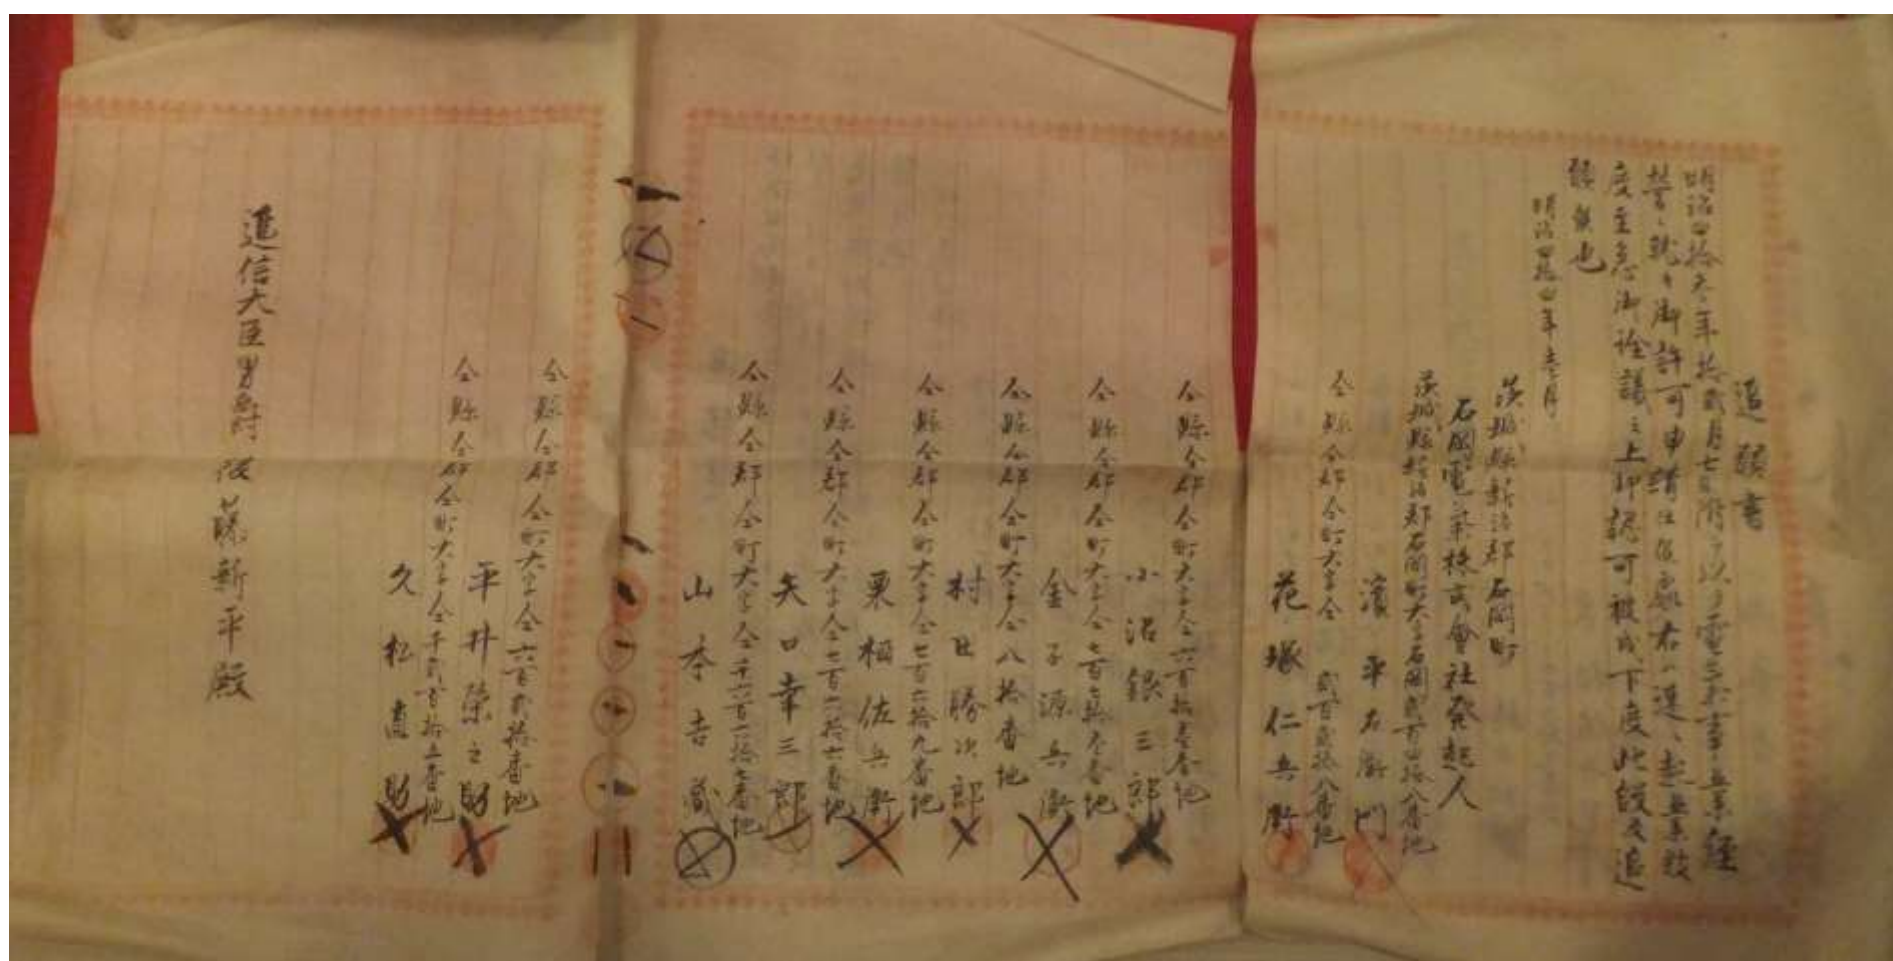 追願書
明治四拾参年拾弐月七日附ヲ以テ電気事業経
営ニ就キ御許可申請仕候処右ハ速ニ起業致
度至急御詮議之上御認可被成下度此段及追
願候也
明治四拾四年壱月
茨城縣新治郡石岡町
石岡電氣株式會社発起人
茨城縣新治郡石岡町大字石岡弐百四拾八番地
濱平右衛門
仝縣仝郡仝町大字仝弐百弐拾八番地
花塚仁兵衛
仝縣仝郡仝町大字仝六百拾壱番地
小沼銀三郎
仝縣仝郡仝町大字仝七百七拾壱番地
金子源兵衛
仝縣仝郡仝町大字仝八拾番地
村田勝次郎
仝縣仝郡仝町大字仝七百六拾九番地
栗栖佐兵衛
仝縣仝郡仝町大字仝七百六拾七番地
矢口幸三郎
仝縣仝郡仝町大字仝千六百六拾七番地
山本吉蔵
仝縣仝郡仝町大字仝六百弐拾番地
平井榮之助
仝縣仝郡仝町大字仝千弐百拾五番地
久松直助
逓信大臣男爵 後藤新平殿